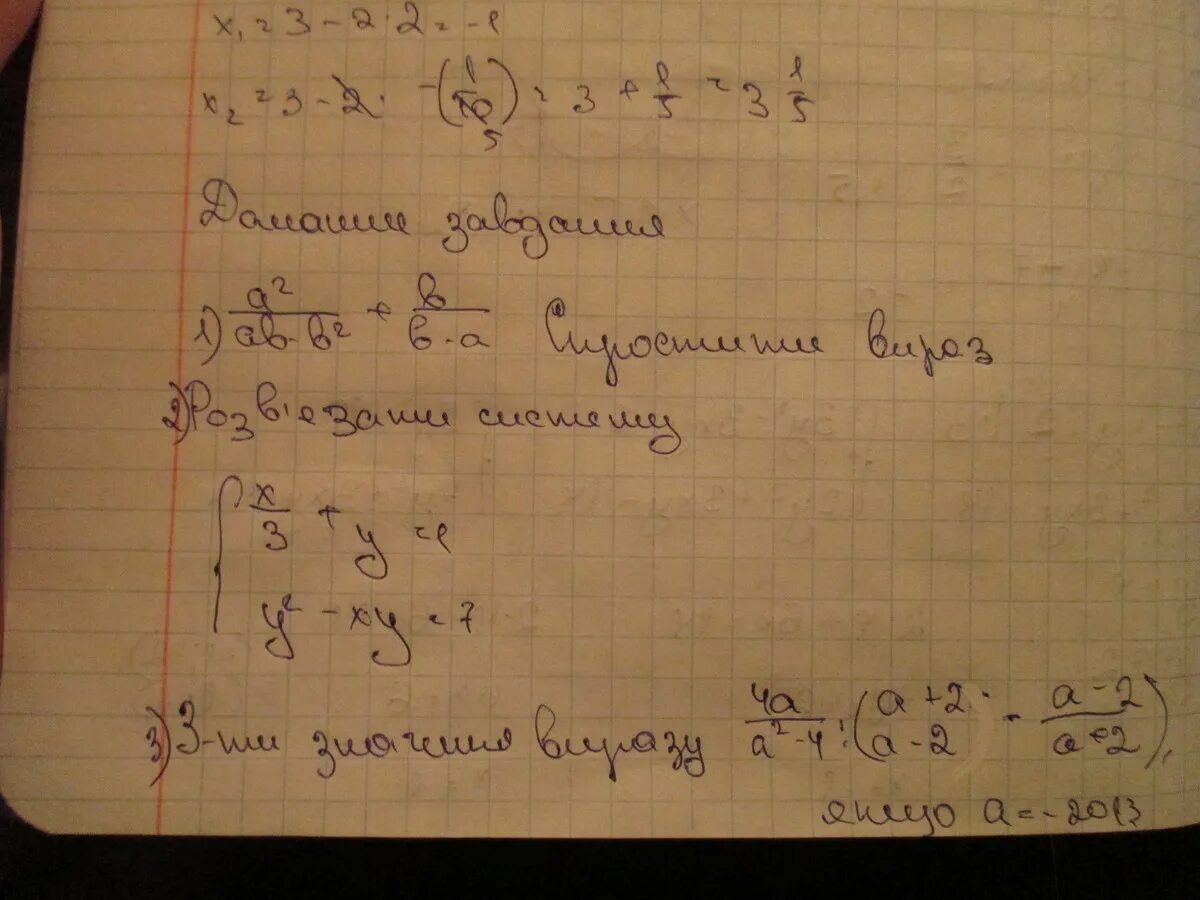 x₁ = 3 - 2·2 = -1
x₂ = 3 - 2· -(1/10 5) = 3 + 1/5 = 3 1/5
Домашнє завдання
1) a²/(ab-b²) + b/(b-a) Спростити вираз
2) Розв'язати систему
{ x/3 + y = 1
y² - xy = 7
3) З-ти значення виразу 4a/(a²-4) : ((a+2)/(a-2) - (a-2)/(a+2)),
якщо a = -2013